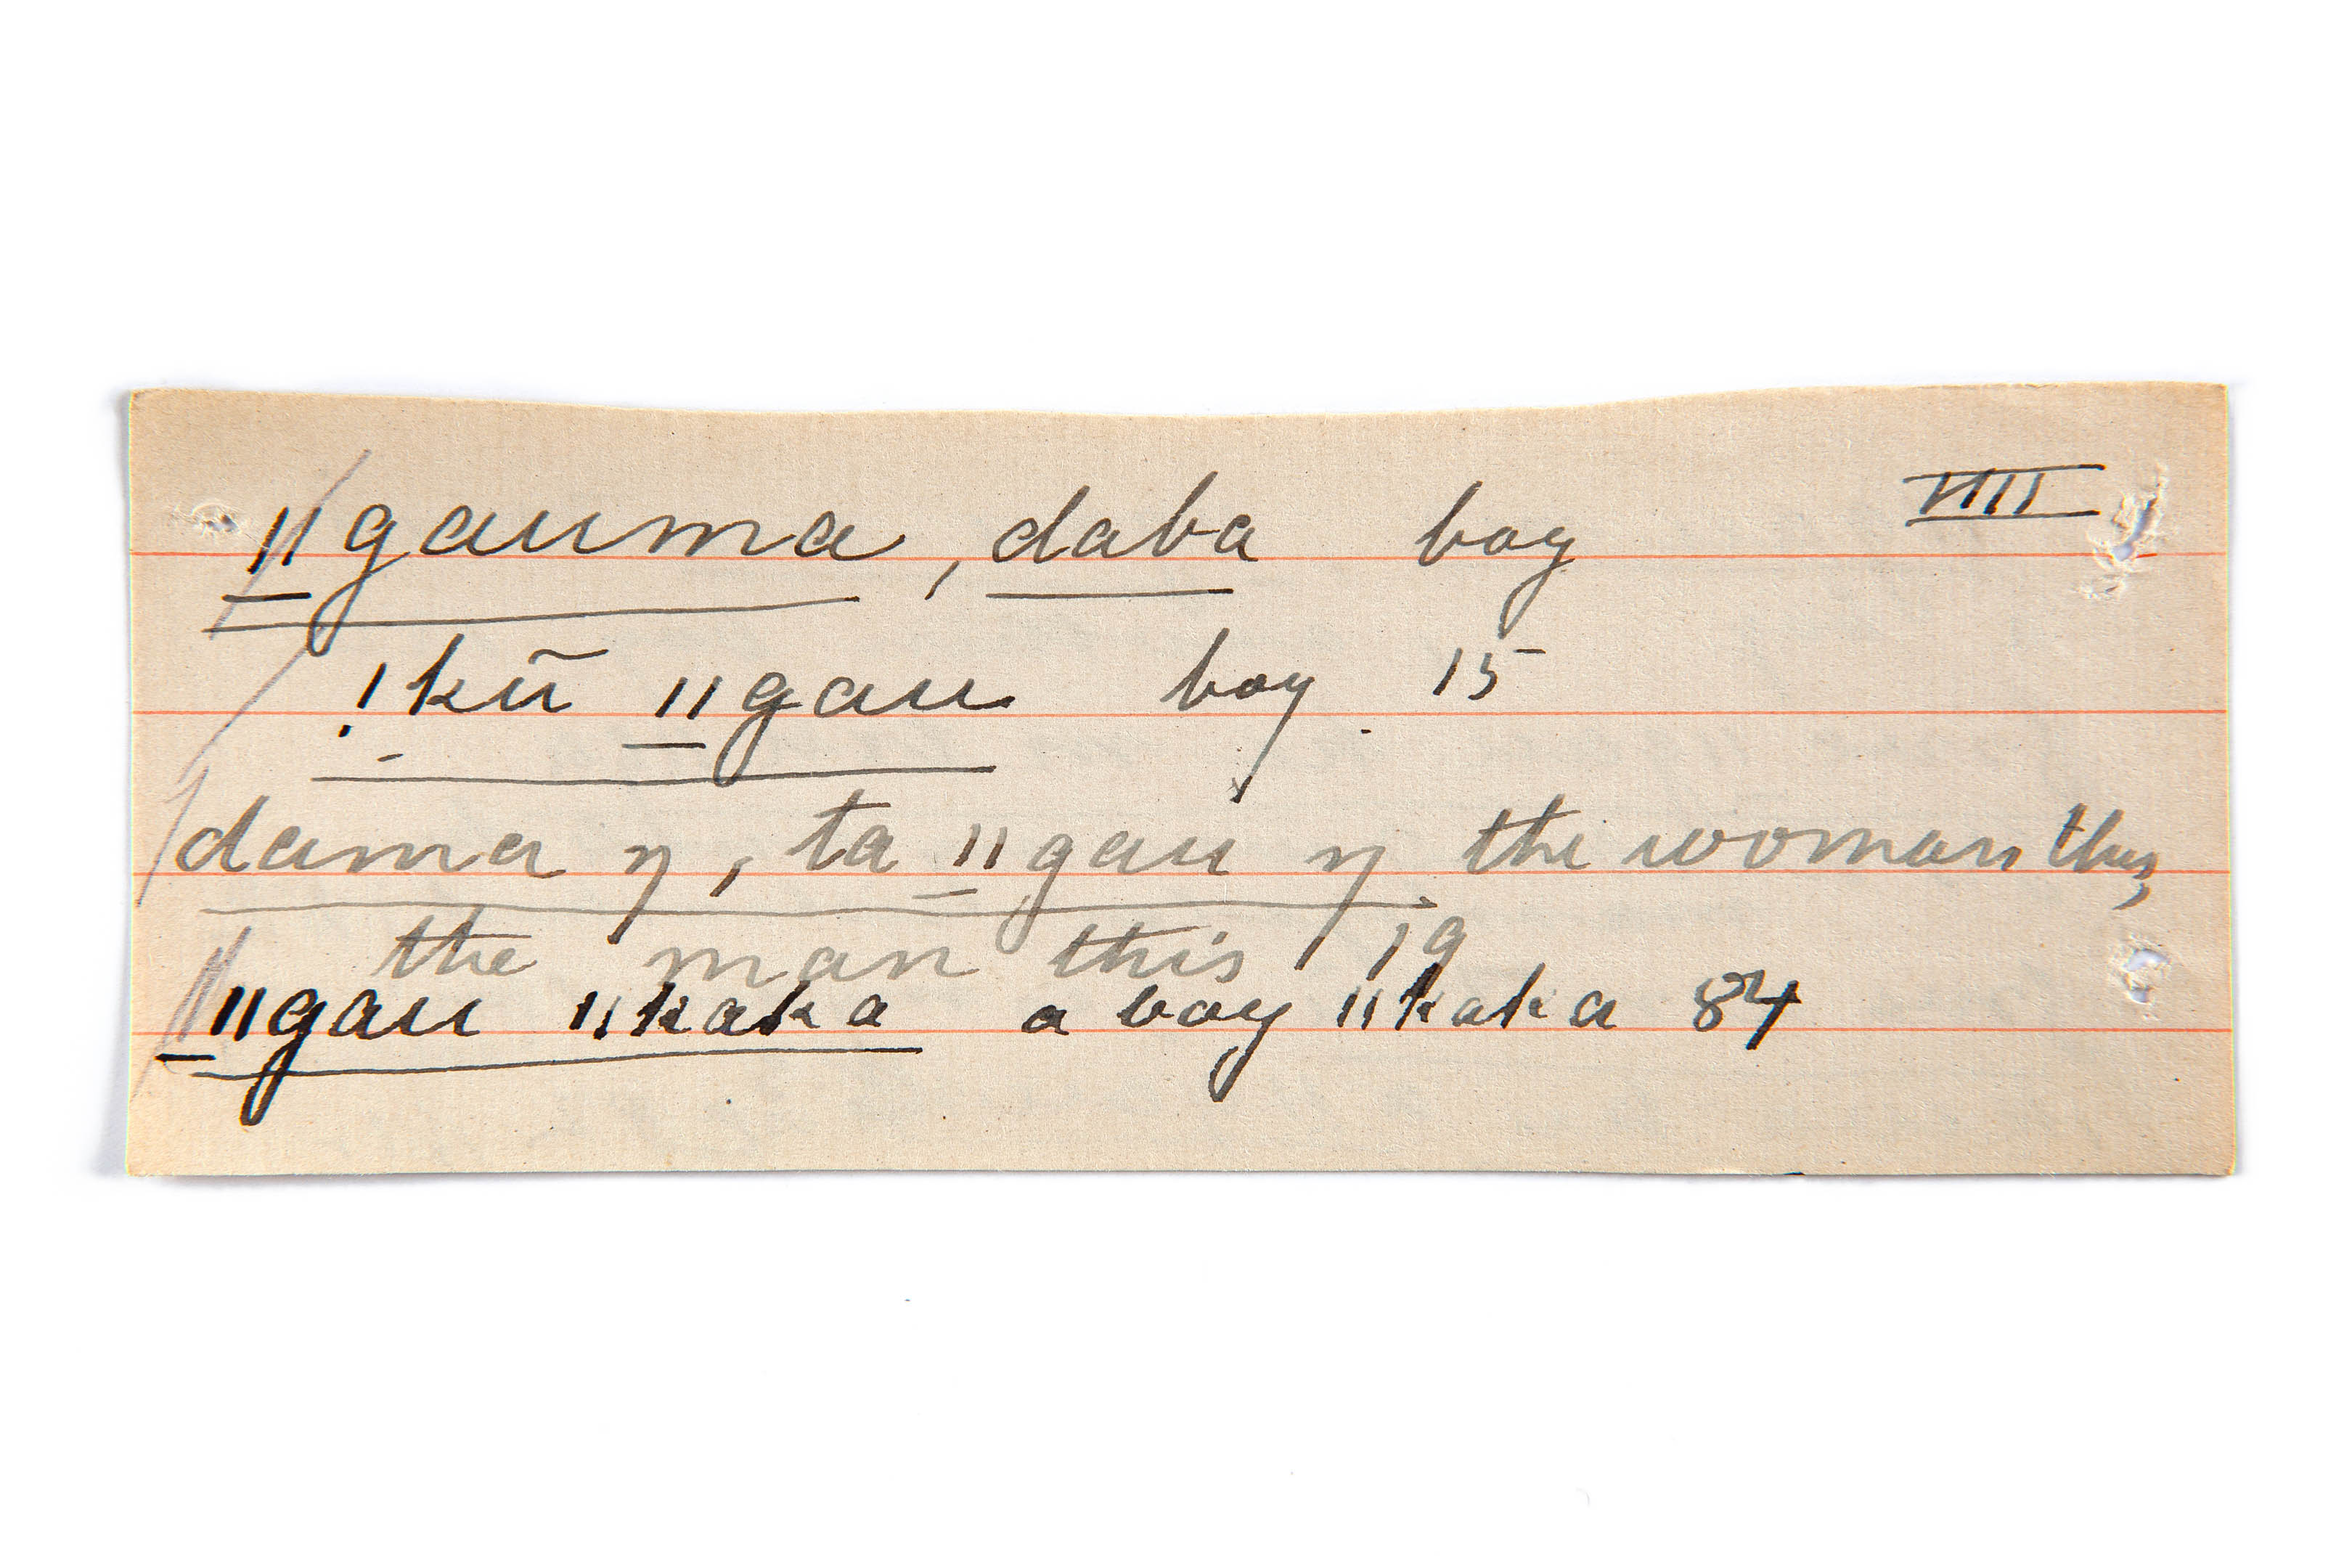 ǁgauma, daba boy VIII
!kū ǁgau boy 15
dama ŋ, ta ǁgau ŋ the woman this,
the man this 19
ǁgau ǁkaka a boy ǁkaka 84